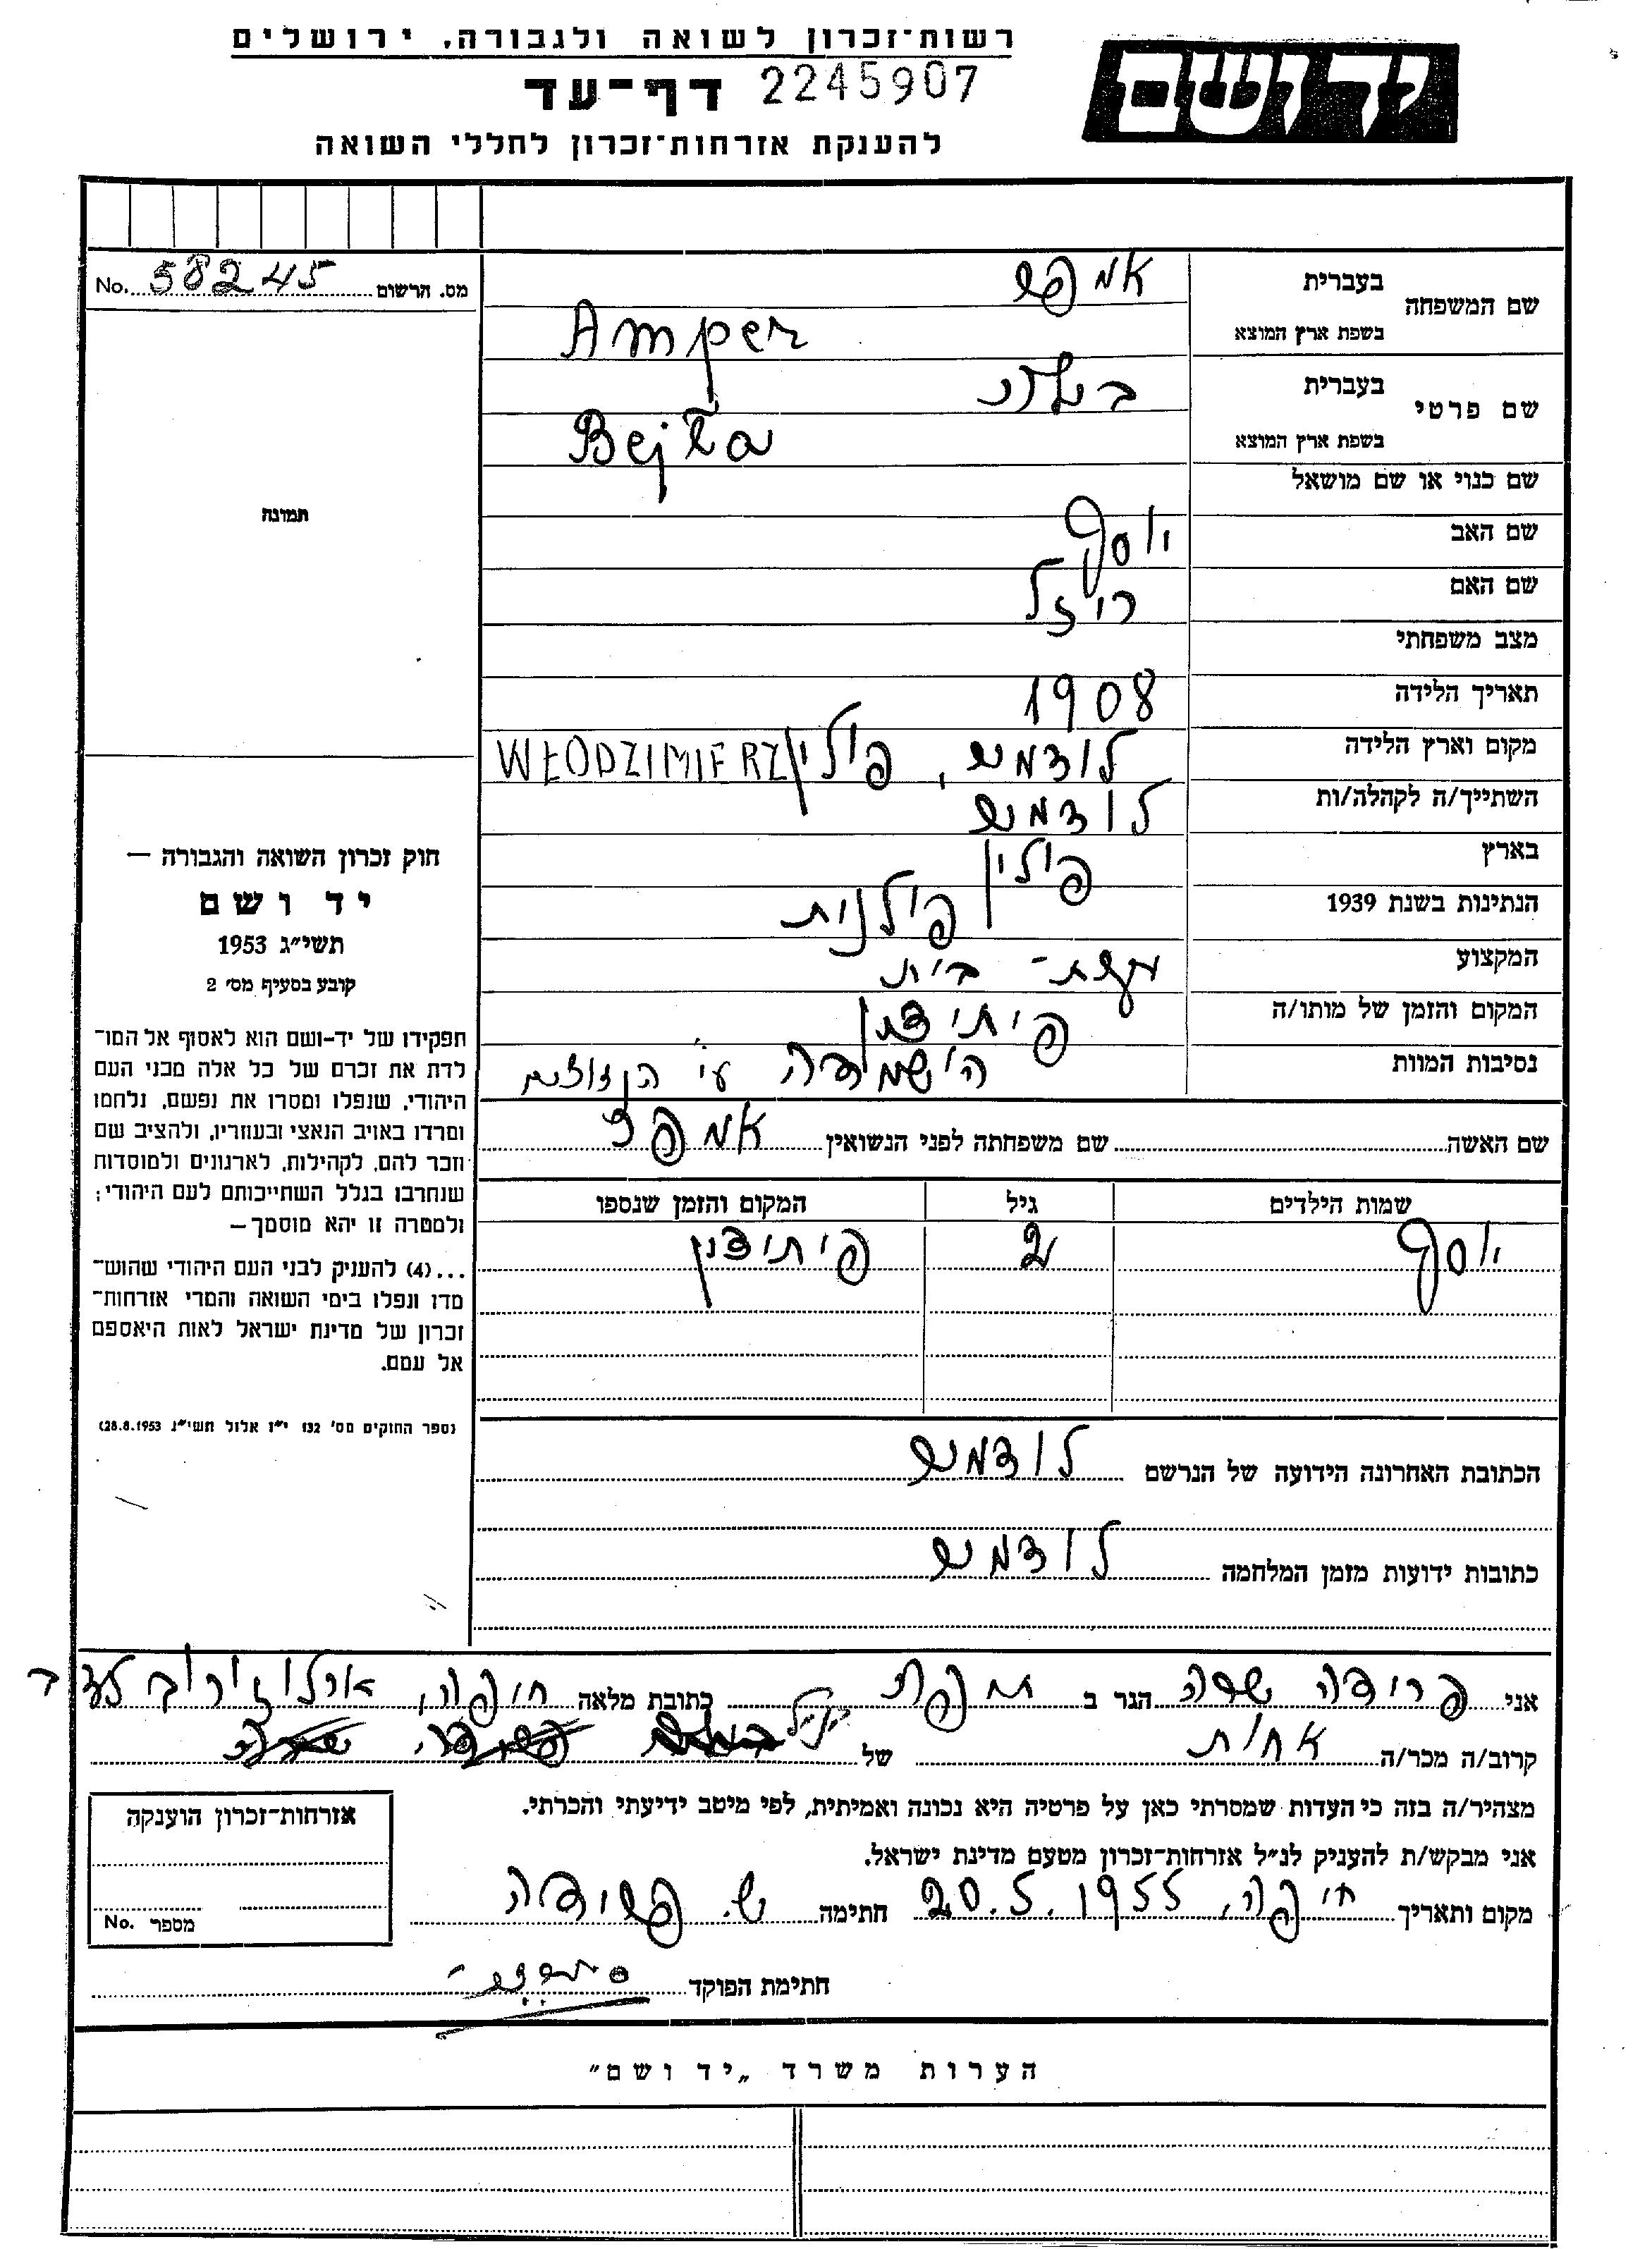 רשות־זכרון לשואה ולגבורה, ירושלים
יד ושם
דף־עד 2245907
להענקת אזרחות־זכרון לחללי השואה
מס. הרשום 58245 No.
תמונה
חוק זכרון השואה והגבורה —
יד ושם
תשי״ג 1953
קובע בסעיף מס׳ 2
תפקידו של יד-ושם הוא לאסוף אל המו־
לדת את זכרם של כל אלה מבני העם
היהודי, שנפלו ומסרו את נפשם, נלחמו
ומרדו באויב הנאצי ובעוזריו, ולהציב שם
וזכר להם, לקהילות, לארגונים ולמוסדות
שנחרבו בגלל השתייכותם לעם היהודי;
ולמטרה זו יהא מוסמך—
...(4) להעניק לבני העם היהודי שהוש־
מדו ונפלו בימי השואה והמרי אזרחות־
זכרון של מדינת ישראל לאות היאספם
אל עמם.
(ספר החוקים מס׳ 132 י״ז אלול תשי״ג 28.8.1953)
שם המשפחה
בעברית אמפר
בשפת ארץ המוצא Amper
שם פרטי
בעברית
בשפת ארץ המוצא Bejła
שם כנוי או שם מושאל
שם האב יוסף
שם האם רייזל
מצב משפחתי
תאריך הלידה 1908
מקום וארץ הלידה לודמיר, פולין WŁODZIMIERZ
השתייך/ה לקהלה/ות לודמיר
בארץ פולין
הנתינות בשנת 1939 פולנית
המקצוע עקרת־בית
המקום והזמן של מותו/ה פיתידן
נסיבות המוות הושמדה ע״י הנאצים
שם האשה שם משפחתה לפני הנשואין אמפר
שמות הילדים גיל המקום והזמן שנספו
יוסף 2 פיתידן
הכתובת האחרונה הידועה של הנרשם לודמיר
כתובות ידועות מזמן המלחמה לודמיר
אני פרידה שרה הגר ב חיפה כתובת מלאה חיפה, ארלוזורוב
קרוב/ה מכר/ה אחות של
מצהיר/ה בזה כי העדות שמסרתי כאן על פרטיה היא נכונה ואמיתית, לפי מיטב ידיעתי והכרתי.
אני מבקש/ת להעניק לנ״ל אזרחות־זכרון מטעם מדינת ישראל.
מקום ותאריך חיפה, 20.5.1955 חתימה ש. פרידה
חתימת הפוקד
אזרחות־זכרון הוענקה
מספר No.
הערות משרד „יד ושם״